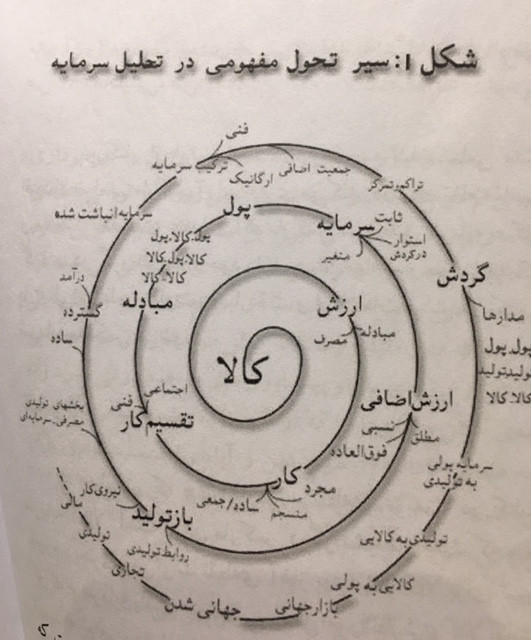 شکل ۱: سیر تحول مفهومی در تحلیل سرمایه
کالا
ارزش
مبادله
مصرف
کار
مجرد
منسجم
ساده/جمعی
تقسیم کار
اجتماعی
فنی
مبادله
کالا.کالا
کالا.پول.کالا
پول.کالا.پول
پول
سرمایه
ثابت
استوار
در گردش
متغیر
ارزش اضافی
مطلق
نسبی
فوق العاده
بازتولید
نیروی کار
روابط تولیدی
بخشهای تولیدی
مصرفی.سرمایه‌ای
ساده
گسترده
درآمد
سرمایه انباشت شده
ترکیب سرمایه
فنی
ارگانیک
جمعیت اضافی
تراکم و تمرکز
گردش
مدارها
پول.پول
تولید.تولید
کالا.کالا
سرمایه پولی
به تولیدی
تولیدی به کالایی
کالایی به پولی
بازار جهانی
جهانی شدن
تجاری
تولیدی
مالی